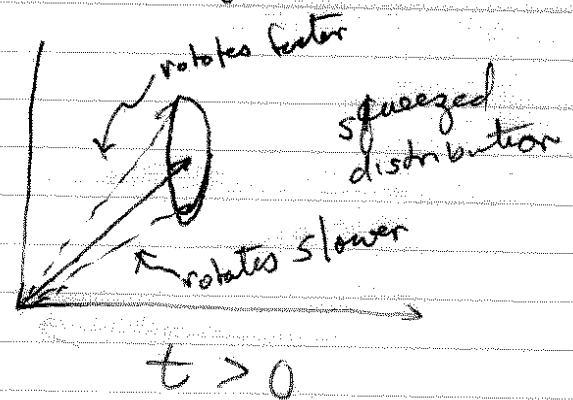 rotates faster
squeezed
distribution
rotates slower
t > 0